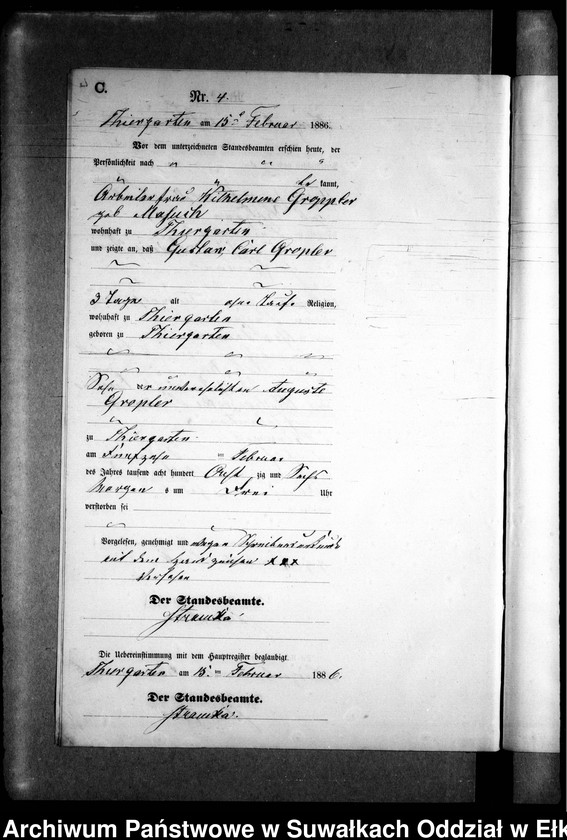 C.
Nr. 4.
Thiergarten am 15ᵗ Februar 1886.
Vor dem unterzeichneten Standesbeamten erschien heute, der
Persönlichkeit nach
be kannt,
Arbeiterfrau Wilhelmine Groppler
geb Masuch
wohnhaft zu Thiergarten
und zeigte an, daß Gustav, Carl Gropler
3 Tage alt ohne Taufe Religion,
wohnhaft zu Thiergarten
geboren zu Thiergarten
Sohn der unverehelichten Auguste
Gropler
zu Thiergarten
am fünfzehn Februar
des Jahres tausend acht hundert Acht zig und Sechs
Morgen s um Drei Uhr
verstorben sei
Vorgelesen, genehmigt und wegen Schreibensunkunde
mit dem Handzeichen xxx
versehen
Der Standesbeamte.
Die Uebereinstimmung mit dem Hauptregister beglaubigt
Thiergarten am 15 Februar 1886.
Der Standesbeamte.
Archiwum Państwowe w Suwałkach Oddział w Ełk